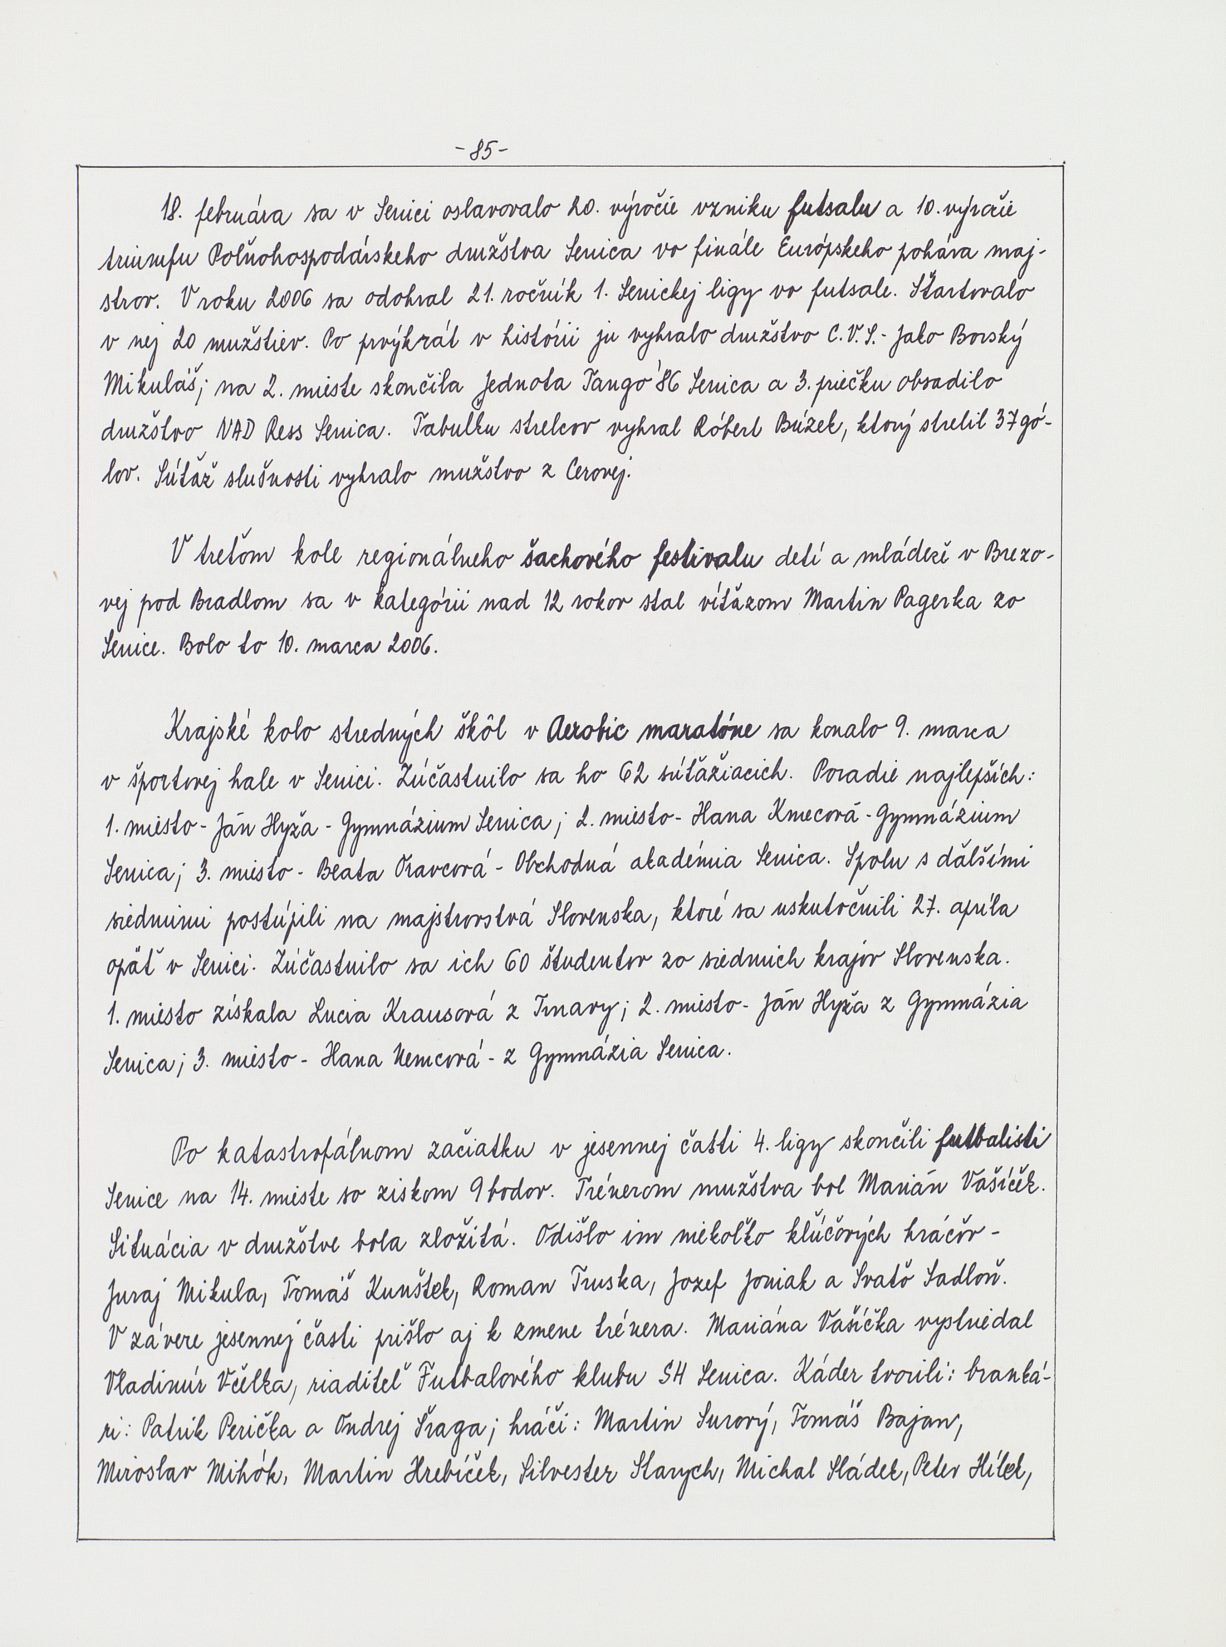 -85-
18. februára sa v Senici oslavovalo 20. výročie vzniku futsalu a 10. výročie
triumfu Poľnohospodárskeho družstva Senica vo finále Európskeho pohára maj-
strov. V roku 2006 sa odohral 21. ročník 1. Senickej ligy vo futsale. Štartovalo
v nej 20 mužstiev. Po prvýkrát v histórii ju vyhralo družstvo C.V.S.- Jako Borský
Mikuláš; na 2. mieste skončila Jednota Tango'86 Senica a 3. priečku obsadilo
družstvo NAD Ress Senica. Tabuľku strelcov vyhral Róbert Búzek, ktorý strelil 37 gó-
lov. Súťaž slušnosti vyhralo mužstvo z Cerovej.
V treťom kole regionálneho šachového festivalu detí a mládeže v Brezo-
vej pod Bradlom sa v kategórii nad 12 rokov stal víťazom Martin Pagerka zo
Senice. Bolo to 10. marca 2006.
Krajské kolo stredných škôl v Aerobic maratóne sa konalo 9. marca
v športovej hale v Senici. Zúčastnilo sa ho 62 súťažiacich. Poradie najlepších:
1. miesto - Ján Hyža - Gymnázium Senica; 2. miesto - Hana Kmecová - Gymnázium
Senica; 3. miesto - Beata Oravcová - Obchodná akadémia Senica. Spolu s ďalšími
siedmimi postúpili na majstrovstvá Slovenska, ktoré sa uskutočnili 27. apríla
opäť v Senici. Zúčastnilo sa ich 60 študentov zo siedmich krajov Slovenska.
1. miesto získala Lucia Krausová z Trnavy; 2. miesto - Ján Hyža z Gymnázia
Senica; 3. miesto - Hana Nemcová - z Gymnázia Senica.
Po katastrofálnom začiatku v jesennej časti 4. ligy skončili futbalisti
Senice na 14. mieste so ziskom 9 bodov. Trénerom mužstva bol Marián Vašíček.
Situácia v družstve bola zložitá. Odišlo im niekoľko kľúčových hráčov -
Juraj Mikula, Tomáš Kunštek, Roman Truska, Jozef Joniak a Svaťo Sadloň.
V závere jesennej časti prišlo aj k zmene trénera. Mariána Vašíčka vystriedal
Vladimír Včelka, riaditeľ Futbalového klubu SH Senica. Káder tvorili: branká-
ri: Patrik Perička a Ondrej Šraga; hráči: Martin Surový, Tomáš Bajan,
Miroslav Mihók, Martin Hrebíček, Silvester Starych, Michal Sládek, Peter Hílek,